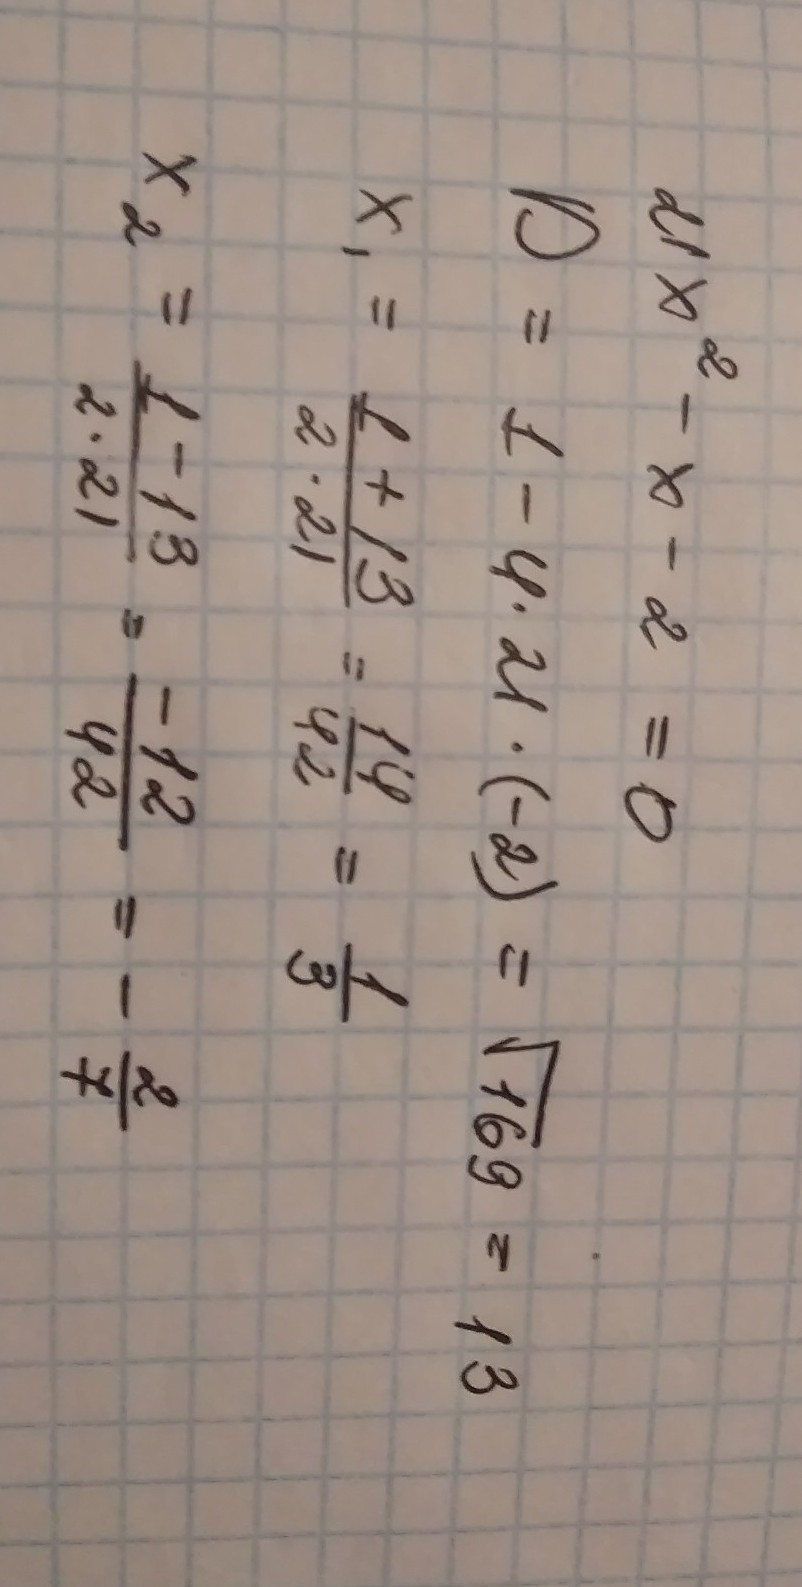 21x² - x - 2 = 0
D = 1 - 4 · 21 · (-2) = √169 = 13
x₁ = (1 + 13)/(2 · 21) = 14/42 = 1/3
x₂ = (1 - 13)/(2 · 21) = -12/42 = - 2/7